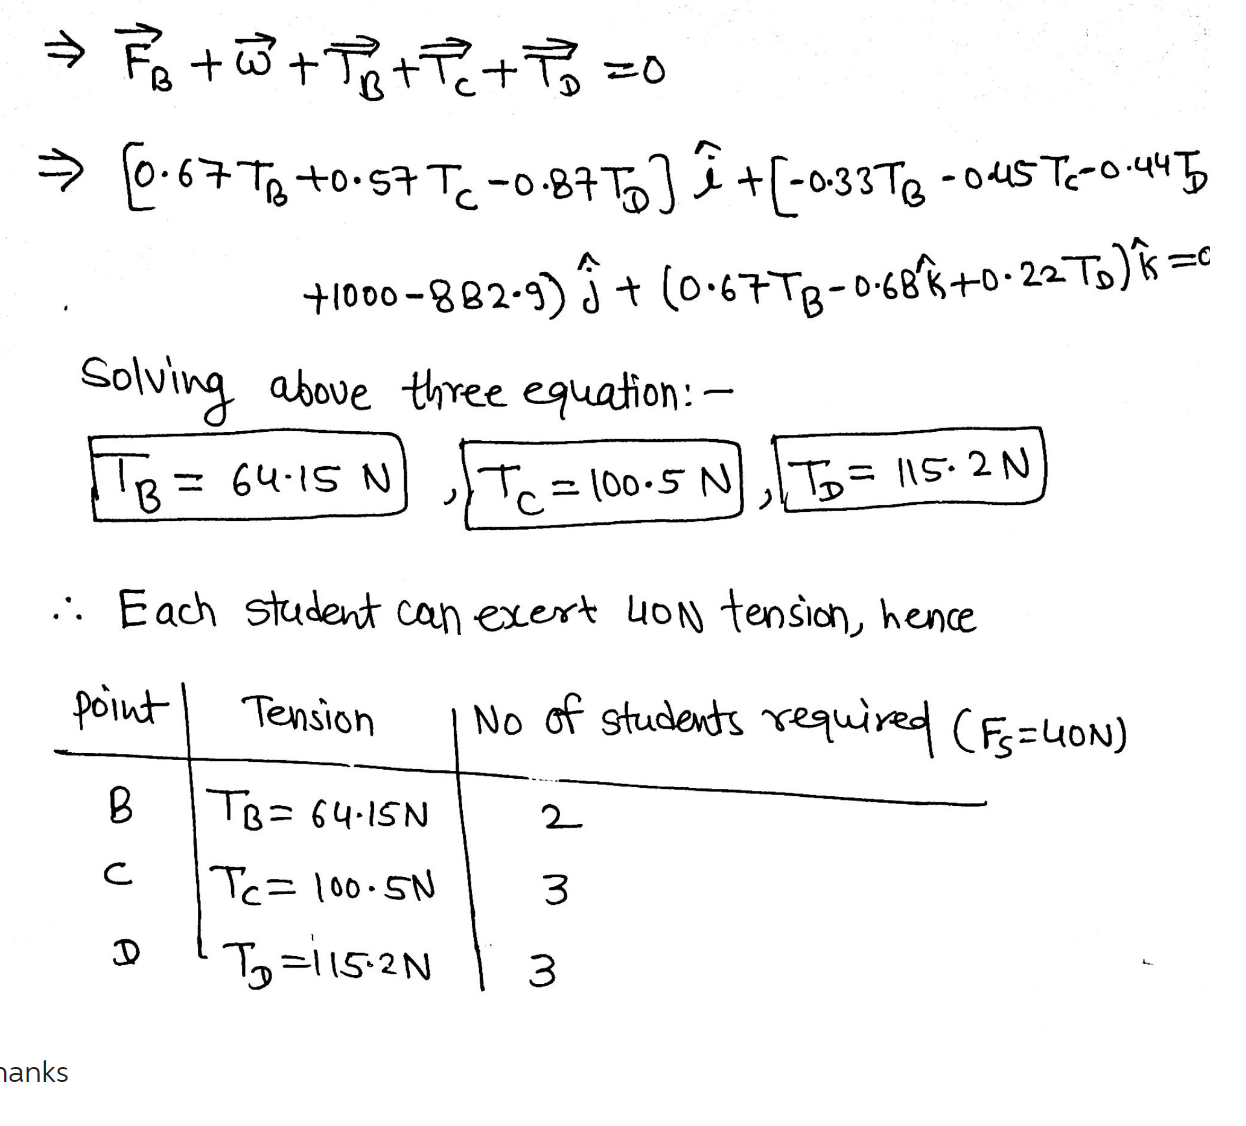 ⇒ F⃗_B + ω⃗ + T⃗_B + T⃗_C + T⃗_D = 0
⇒ [0.67 T_B + 0.57 T_C - 0.87 T_D] î + [-0.33 T_B - 0.45 T_C - 0.44 T_D
+1000 - 882.9) ĵ + (0.67 T_B - 0.68 k̂ + 0.22 T_D) k̂ = 0
Solving above three equation: -
T_B = 64.15 N , T_C = 100.5 N , T_D = 115.2 N
∴ Each student can exert 40N tension, hence
point Tension No of students required (F_S = 40N)
B T_B = 64.15N 2
C T_C = 100.5N 3
D T_D = 115.2N 3
hanks